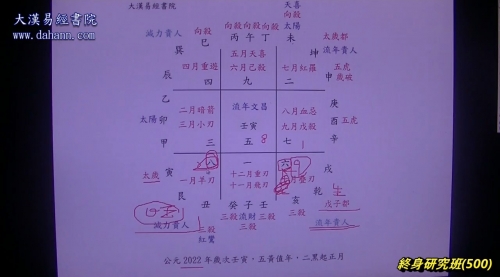 大漢易經書院
www.dahann.com
大漢易經書院
天喜
向殺
減力貴人 向殺 向殺 向殺 向殺 太陽
巳 丙 午 丁 未
巽 坤 太歲都
流年貴人
五月天喜
四月重遊 六月己殺 七月紅羅 申 五虎
歲破
辰 四 九 二
乙 庚
二月暗箭 流年文昌 八月血忌
太陽 卯 三月小刃 壬寅 九月戊殺 酉 五虎
甲 三 五 8 七 辛
太歲 寅 八 一 六 戌
一月羊刃 十二月重刃
十一月飛刃
艮 乾
丑 癸 子 壬 亥 戊子都
減力貴人 三殺 三殺 流財 三殺 三殺 流年貴人
紅鸞 三殺
公元 2022 年歲次壬寅,五黃值年,二黑起正月
終身研究班(500)